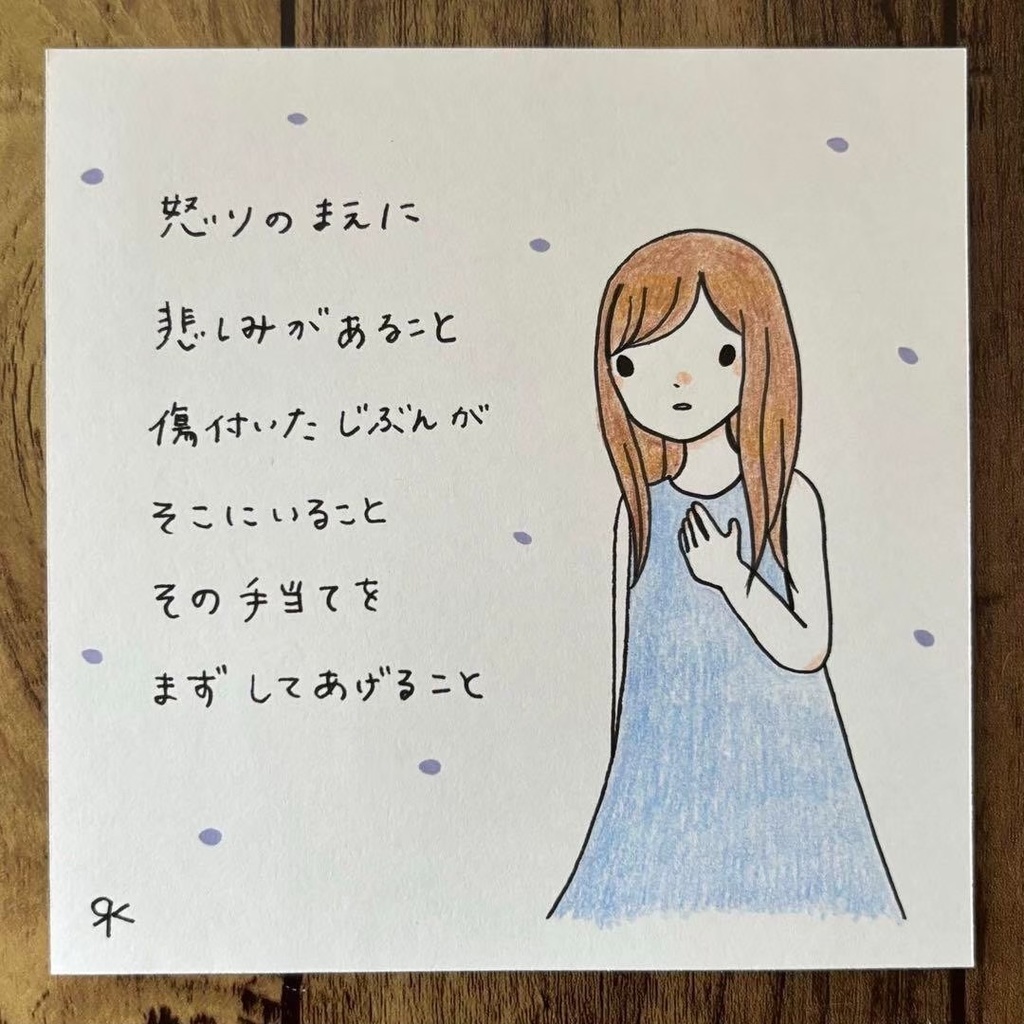 怒りのまえに
悲しみがあること
傷付いたじぶんが
そこにいること
その手当てを
まずしてあげること